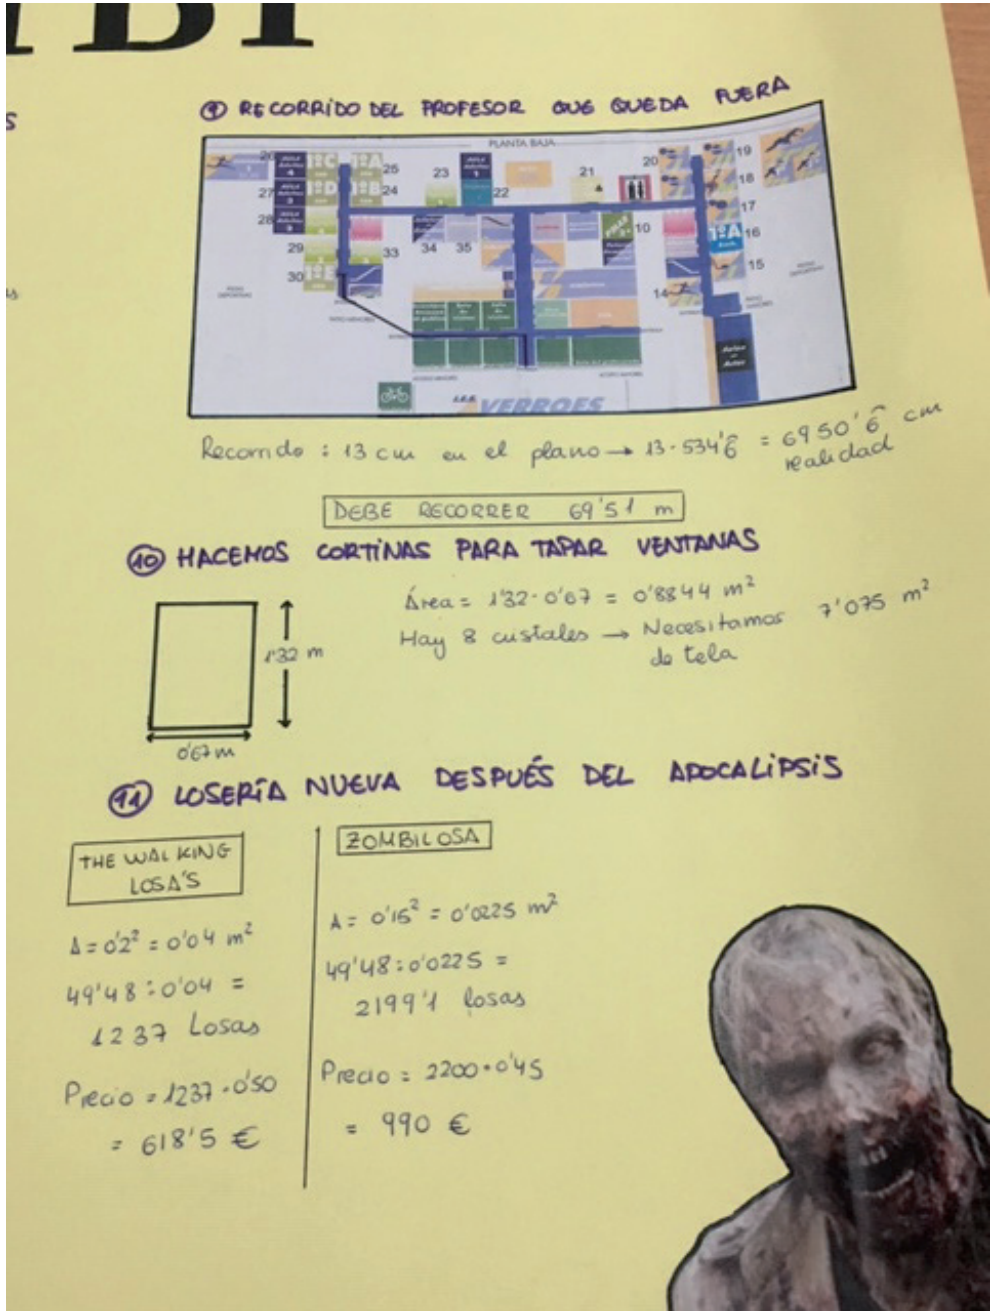 9 RECORRIDO DEL PROFESOR QUE QUEDA FUERA
PLANTA BAJA
26
1ºC
1ºA
25
23
22
21
20
19
27
1ºD
1ºB
24
18
28
17
29
33
34
35
10
1ºA
16
30
1ºE
15
14
VERROES
Recorrido : 13 cm en el plano → 13·534'6̂ = 6950'6̂ cm
realidad
DEBE RECORRER 69'51 m
10 HACEMOS CORTINAS PARA TAPAR VENTANAS
Área = 1'32·0'67 = 0'8844 m²
1'32 m
Hay 8 cristales → Necesitamos 7'075 m²
de tela
0'67 m
11 LOSERÍA NUEVA DESPUÉS DEL APOCALIPSIS
THE WALKING
LOSA'S
A = 0'2² = 0'04 m²
49'48 : 0'04 =
1237 Losas
Precio = 1237·0'50
= 618'5 €
ZOMBILOSA
A = 0'15² = 0'0225 m²
49'48 : 0'0225 =
2199'1 losas
Precio = 2200·0'45
= 990 €